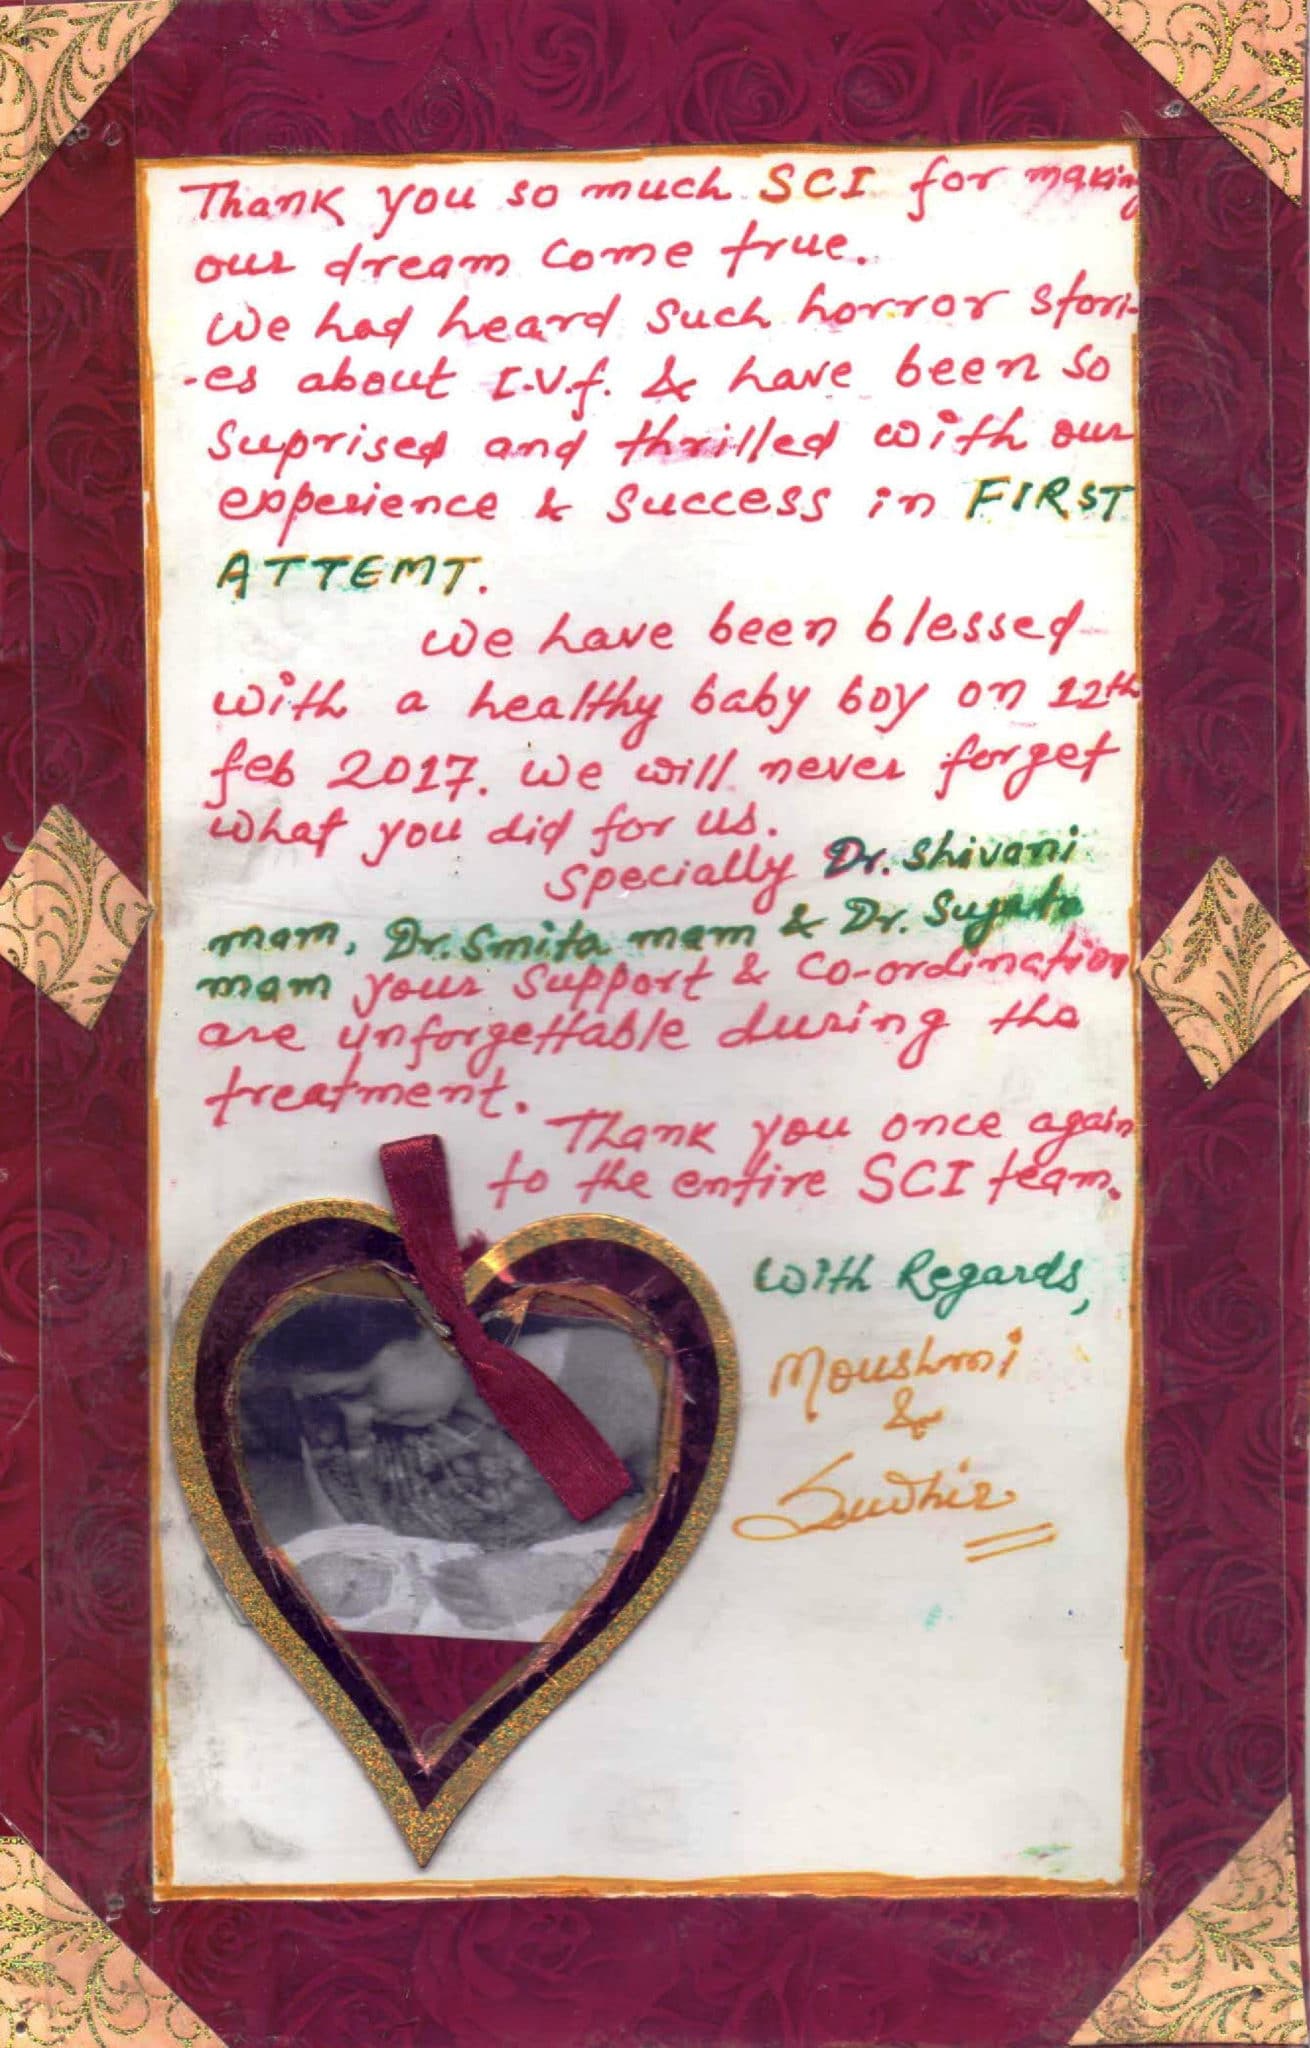 Thank you so much SCI for making
our dream come true.
We had heard such horror stori-
-es about I.V.f. & have been so
suprised and thrilled with our
experience & success in FIRST
ATTEMT.
We have been blessed
with a healthy baby boy on 12th
feb 2017. We will never forget
what you did for us.
specially Dr. Shivani
mam, Dr. Smita mam & Dr. Sujata
mam your support & co-ordination
are unforgettable during the
treatment.
Thank you once again
to the entire SCI team.
With Regards,
Moushmi
&
Sudhir